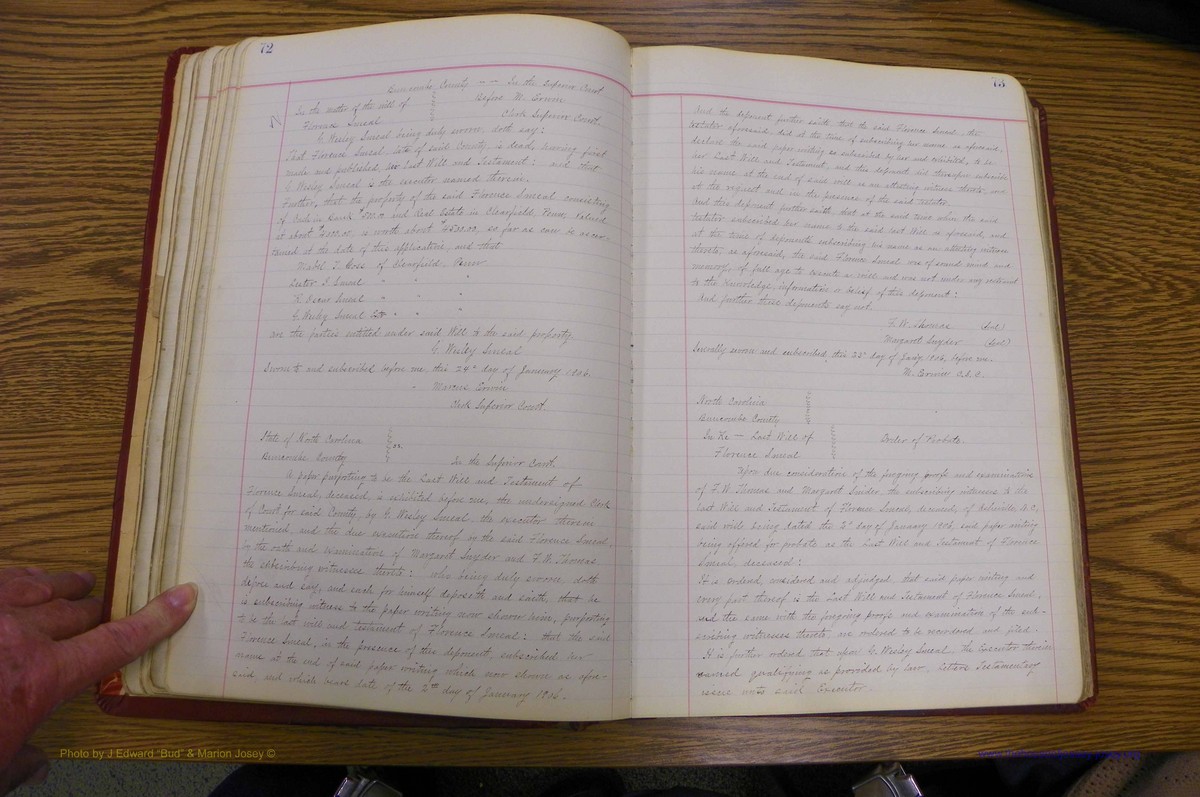 72
Buncombe County -- In the Superior Court
In the matter of the will of
Before M. Erwin
Florence Smeal
Clerk Superior Court.
G. Wesley Smeal being duly sworn, doth say:
That Florence Smeal late of said County, is dead, having first
made and published her Last Will and Testament: and that
G. Wesley Smeal is the executor named therein.
Further, that the property of the said Florence Smeal consisting
of Cash in bank and Real Estate in Clearfield, Penn. valued
at about is worth about so far as can be ascer-
tained at the date of this application, and that
Mabel T. Goss of Clearfield Penn
Lester Smeal " "
R. Oscar Smeal " "
G. Wesley Smeal " "
are the parties entitled under said Will to the said property.
G. Wesley Smeal
Sworn to and subscribed before me, this 24" day of January 1906.
Marcus Erwin
Clerk Superior Court.
State of North Carolina
Buncombe County
In the Superior Court.
A paper purporting to be the Last Will and Testament of
Florence Smeal, deceased, is exhibited before me, the undersigned Clerk
of Court for said County, by G. Wesley Smeal, the executor therein
mentioned, and the due execution thereof by the said Florence Smeal,
by the oath and examination of Margaret Snyder and F.W. Thomas
the subscribing witnesses thereto: who being duly sworn, doth
depose and say, and each for himself deposeth and saith, that he
is subscribing witness to the paper writing now shown him, purporting
to be the last will and testament of Florence Smeal: that the said
Florence Smeal, in the presence of this deponent, subscribed her
name at the end of said paper writing which now shown as afore-
said, and which bears date of the 2nd day of January 1906.
73
And the deponent further saith, that the said Florence Smeal, the
testator aforesaid, did at the time of subscribing her name as aforesaid,
declare the said paper writing so subscribed by her and exhibited, to be
her Last Will and Testament, and this deponent did thereupon subscribe
his name at the end of said will as an attesting witness thereto, and
at the request and in the presence of the said testator.
And this deponent further saith, that at the said time when the said
testator subscribed her name to the said last Will as aforesaid, and
at the time of deponents subscribing his name as an attesting witness
thereto, as aforesaid, the said Florence Smeal was of sound mind and
memory, of full age to execute a will and was not under any restraint
to the knowledge, information or belief of this deponent:
And further these deponents say not.
F.W. Thomas (Seal)
Margaret Snyder (Seal)
Severally sworn and subscribed, this 23" day of Jany 1906, before me.
M. Erwin C.S.C.
North Carolina
Buncombe County
In Re - Last Will of
Order of Probate.
Florence Smeal
Upon due consideration of the foregoing proofs and examination
of F.W. Thomas and Margaret Snyder, the subscribing witnesses to the
Last Will and Testament of Florence Smeal, deceased, of Asheville, N.C.,
said will being dated the 2" day of January 1906, said paper writing
being offered for probate as the Last Will and Testament of Florence
Smeal, deceased:
It is ordered, considered and adjudged, that said paper writing and
every part thereof is the Last Will and Testament of Florence Smeal,
and the same with the foregoing proofs and examination of the sub-
scribing witnesses thereto, are ordered to be recorded and filed.
It is further ordered that upon G. Wesley Smeal, the Executor therein
named qualifying as provided by law, Letters Testamentary
issue unto said Executor.
Photo by J Edward "Bud" & Marion Josey ©